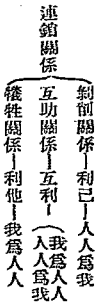 連鎖關係
剝削關係—利己—人人爲我
互助關係—互利—(我爲人人
人人爲我
犧牲關係—利他—我爲人人